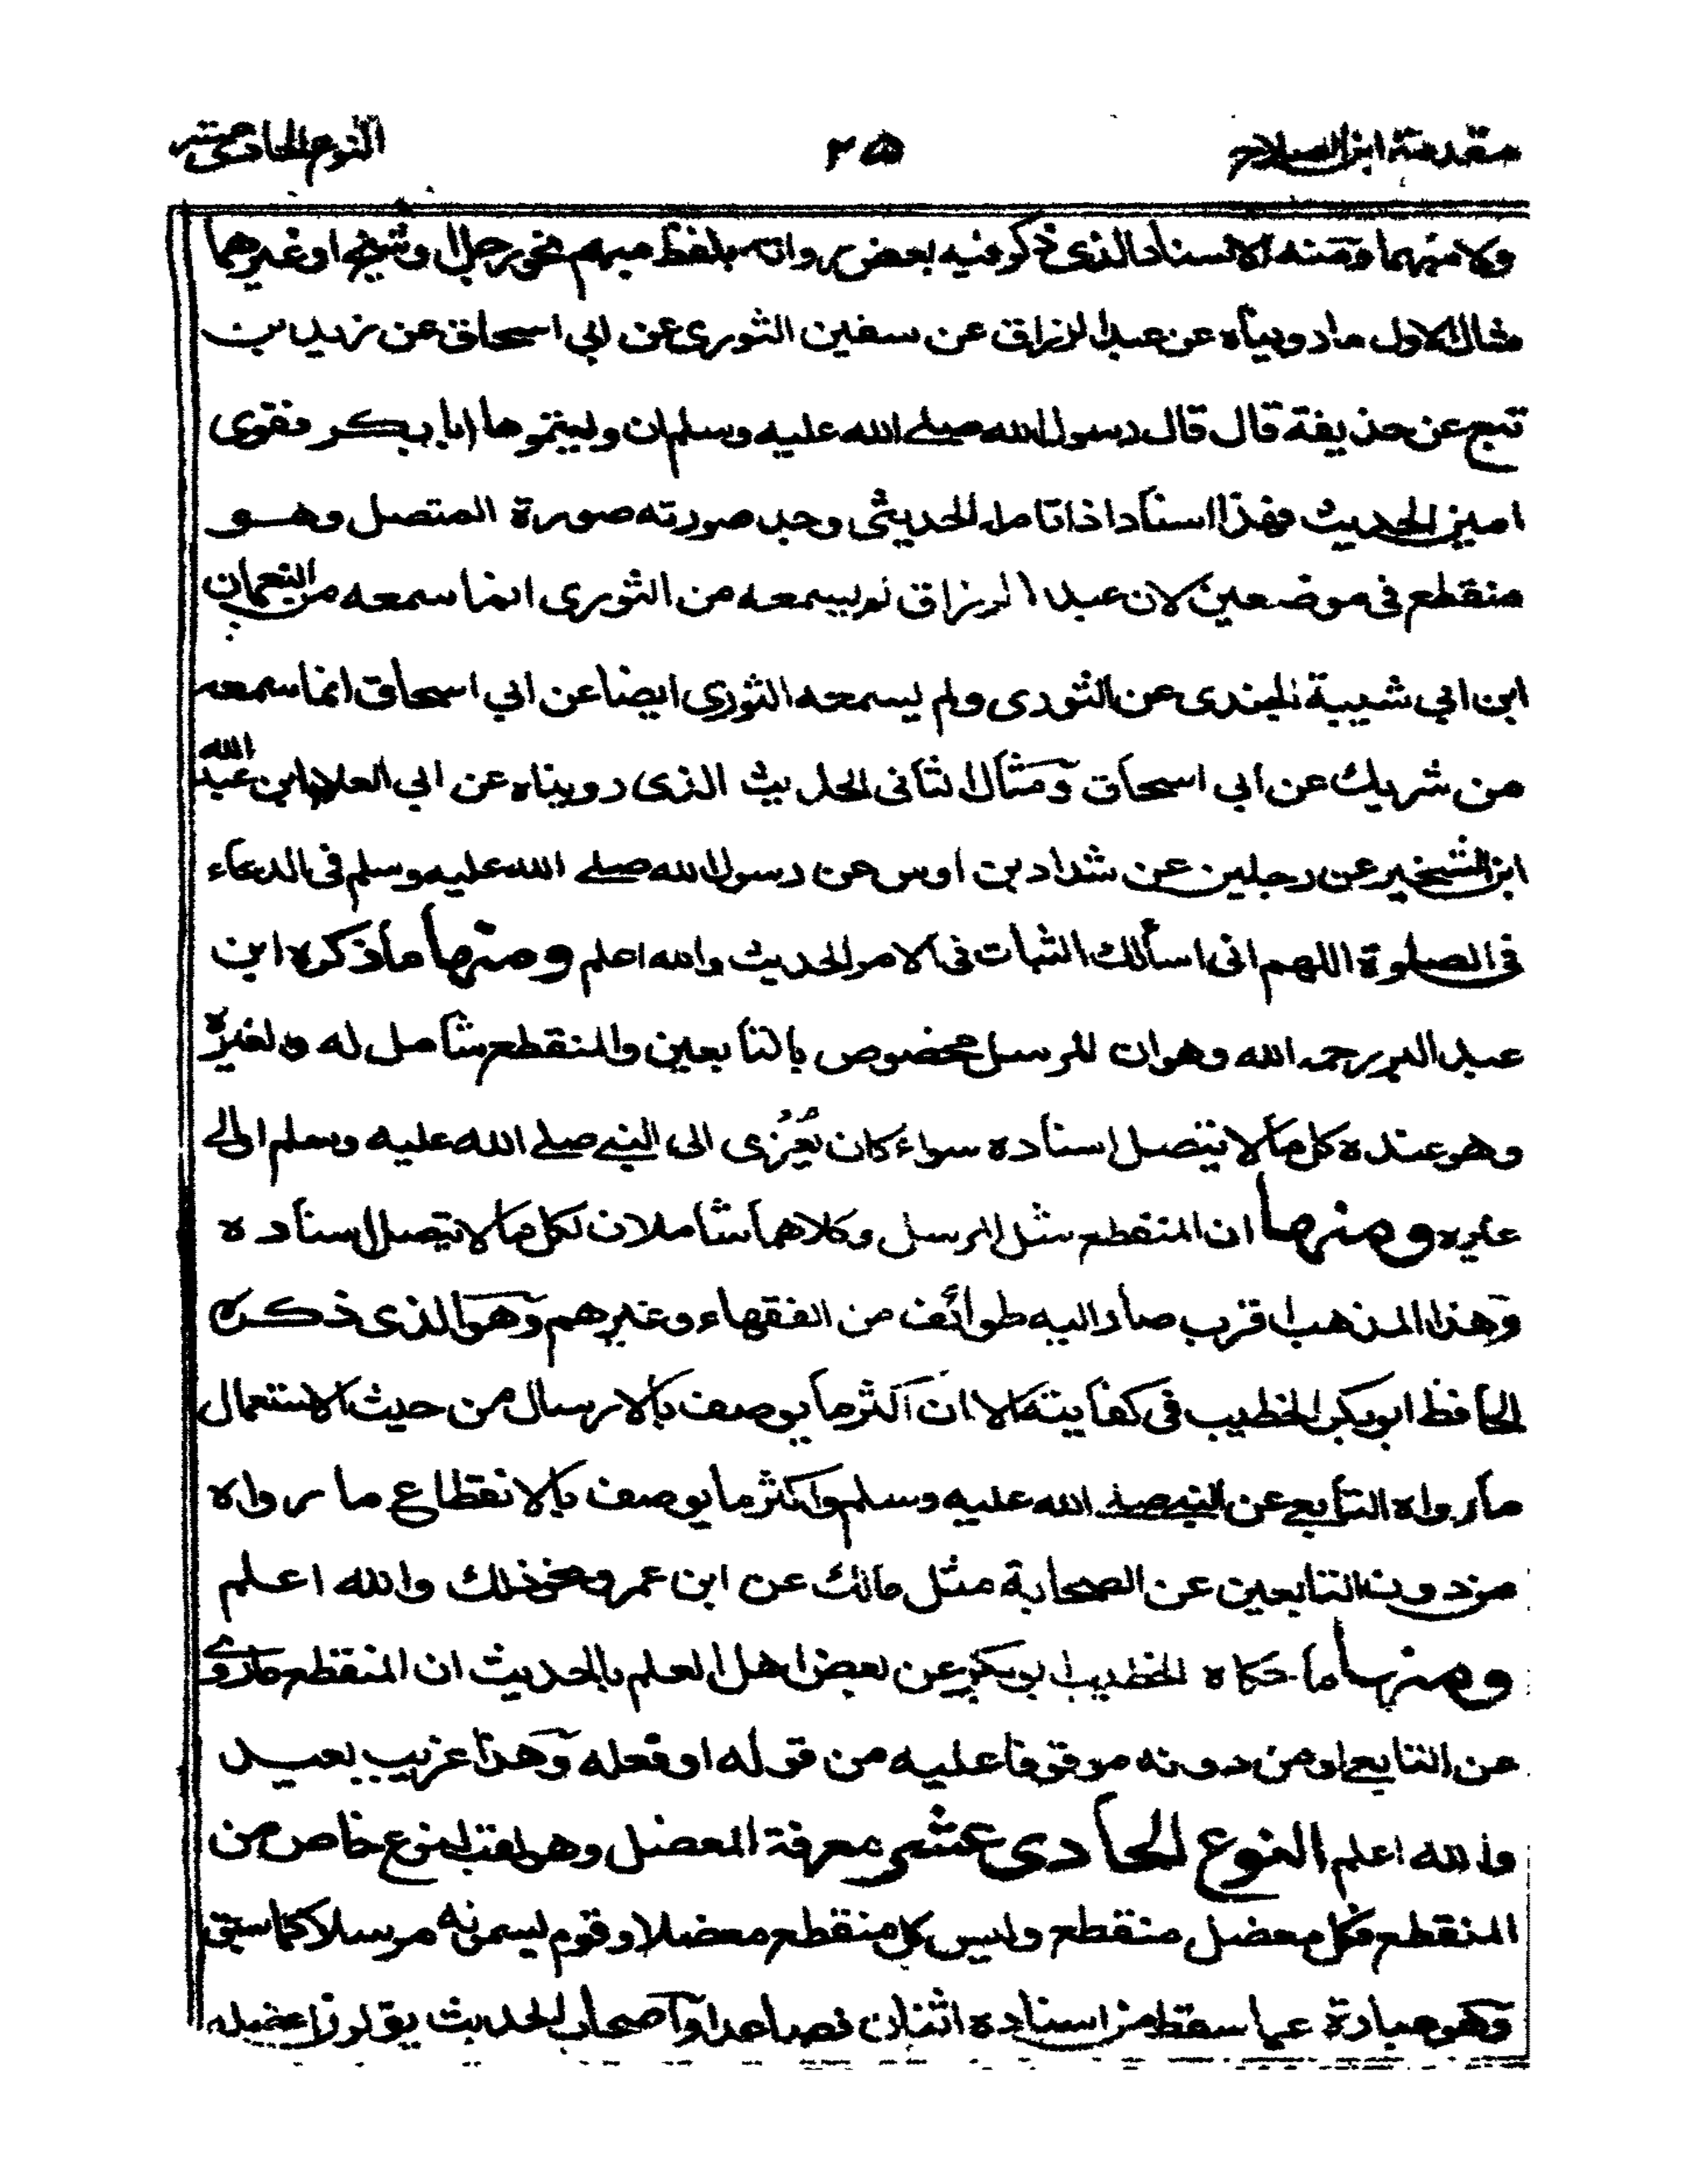 مقدمة ابن الصلاح ٢٥ النوع الحادي عشر
ولا مبهما ومنه الاسناد الذى ذكر فيه بعض رواته بلفظ مبهم نحو رجل او شيخ او غيرهما
مثال الاول ما رويناه عن عبد الرزاق عن سفين الثورى عن ابي اسحاق عن زيد بن
تبيع عن حذيفة قال قال رسول الله صلے الله عليه وسلم ان وليتموها ابا بكر فقوى
امين الحديث فهذا اسناد اذا تامله الحديثى وجد صورته صورة المتصل وهو
منقطع فى موضعين لان عبد الرزاق لم يسمعه من الثورى انما سمعه من النعمان
ابن ابي شيبة الجندى عن الثورى ولم يسمعه الثوري ايضا عن ابي اسحاق انما سمعه
من شريك عن ابي اسحاق ومثال الثانى الحديث الذى رويناه عن ابي العلاء بن عبد الله
ابن الشخير عن رجلين عن شداد بن اوس عن رسول الله صلے الله عليه وسلم فى الدعاء
فى الصلوة اللهم انى اسألك الثبات فى الامر الحديث والله اعلم ومنها ما ذكره ابن
عبد البر رحمه الله وهو ان المرسل مخصوص بالتابعين والمنقطع شامل له ولغيره
وهو عنده كل ما لا يتصل اسناده سواء كان يُعزى الى النبے صلے الله عليه وسلم او الے
غيره ومنها ان المنقطع مثل المرسل وكلاهما شاملان لكل ما لا يتصل اسناده
وهذا المذهب اقرب صار اليه طوائف من الفقهاء وغيرهم وهو الذى ذكره
الحافظ ابو بكر الخطيب فى كفايته الا ان اكثر ما يوصف بالارسال من حيث الاستعمال
ما رواه التابعے عن النبے صلے الله عليه وسلم واكثر ما يوصف بالانقطاع ما رواه
من دون التابعين عن الصحابة مثل مالك عن ابن عمر ونحو ذلك والله اعلم
ومنها ما حكاه الخطيب ابو بكر عن بعض اهل العلم بالحديث ان المنقطع ما روى
عن التابعے او من دونه موقوفا عليه من قوله او فعله وهذا غريب بعيد
والله اعلم النوع الحادى عشر معرفة المعضل وهو لقب لنوع خاص من
المنقطع فكل معضل منقطع وليس كل منقطع معضلا وقوم يسمونه مرسلا كما سبق
وهو عبارة عما سقط من اسناده اثنان فصاعدا واصحاب الحديث يقولون اعضله